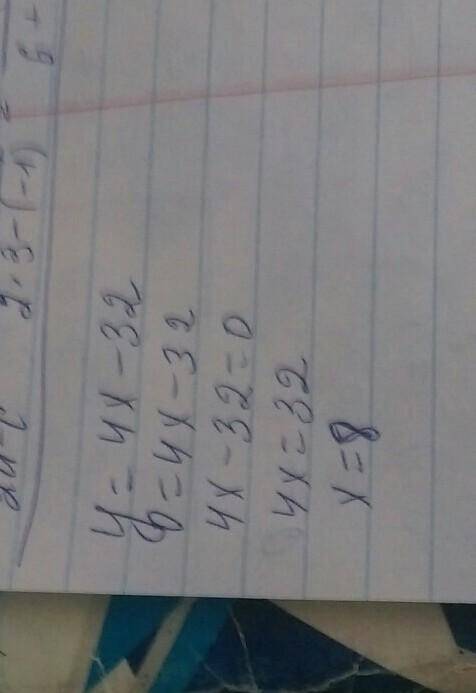 2·3-(-1)
y = 4x - 32
0 = 4x - 32
4x - 32 = 0
4x = 32
x = 8